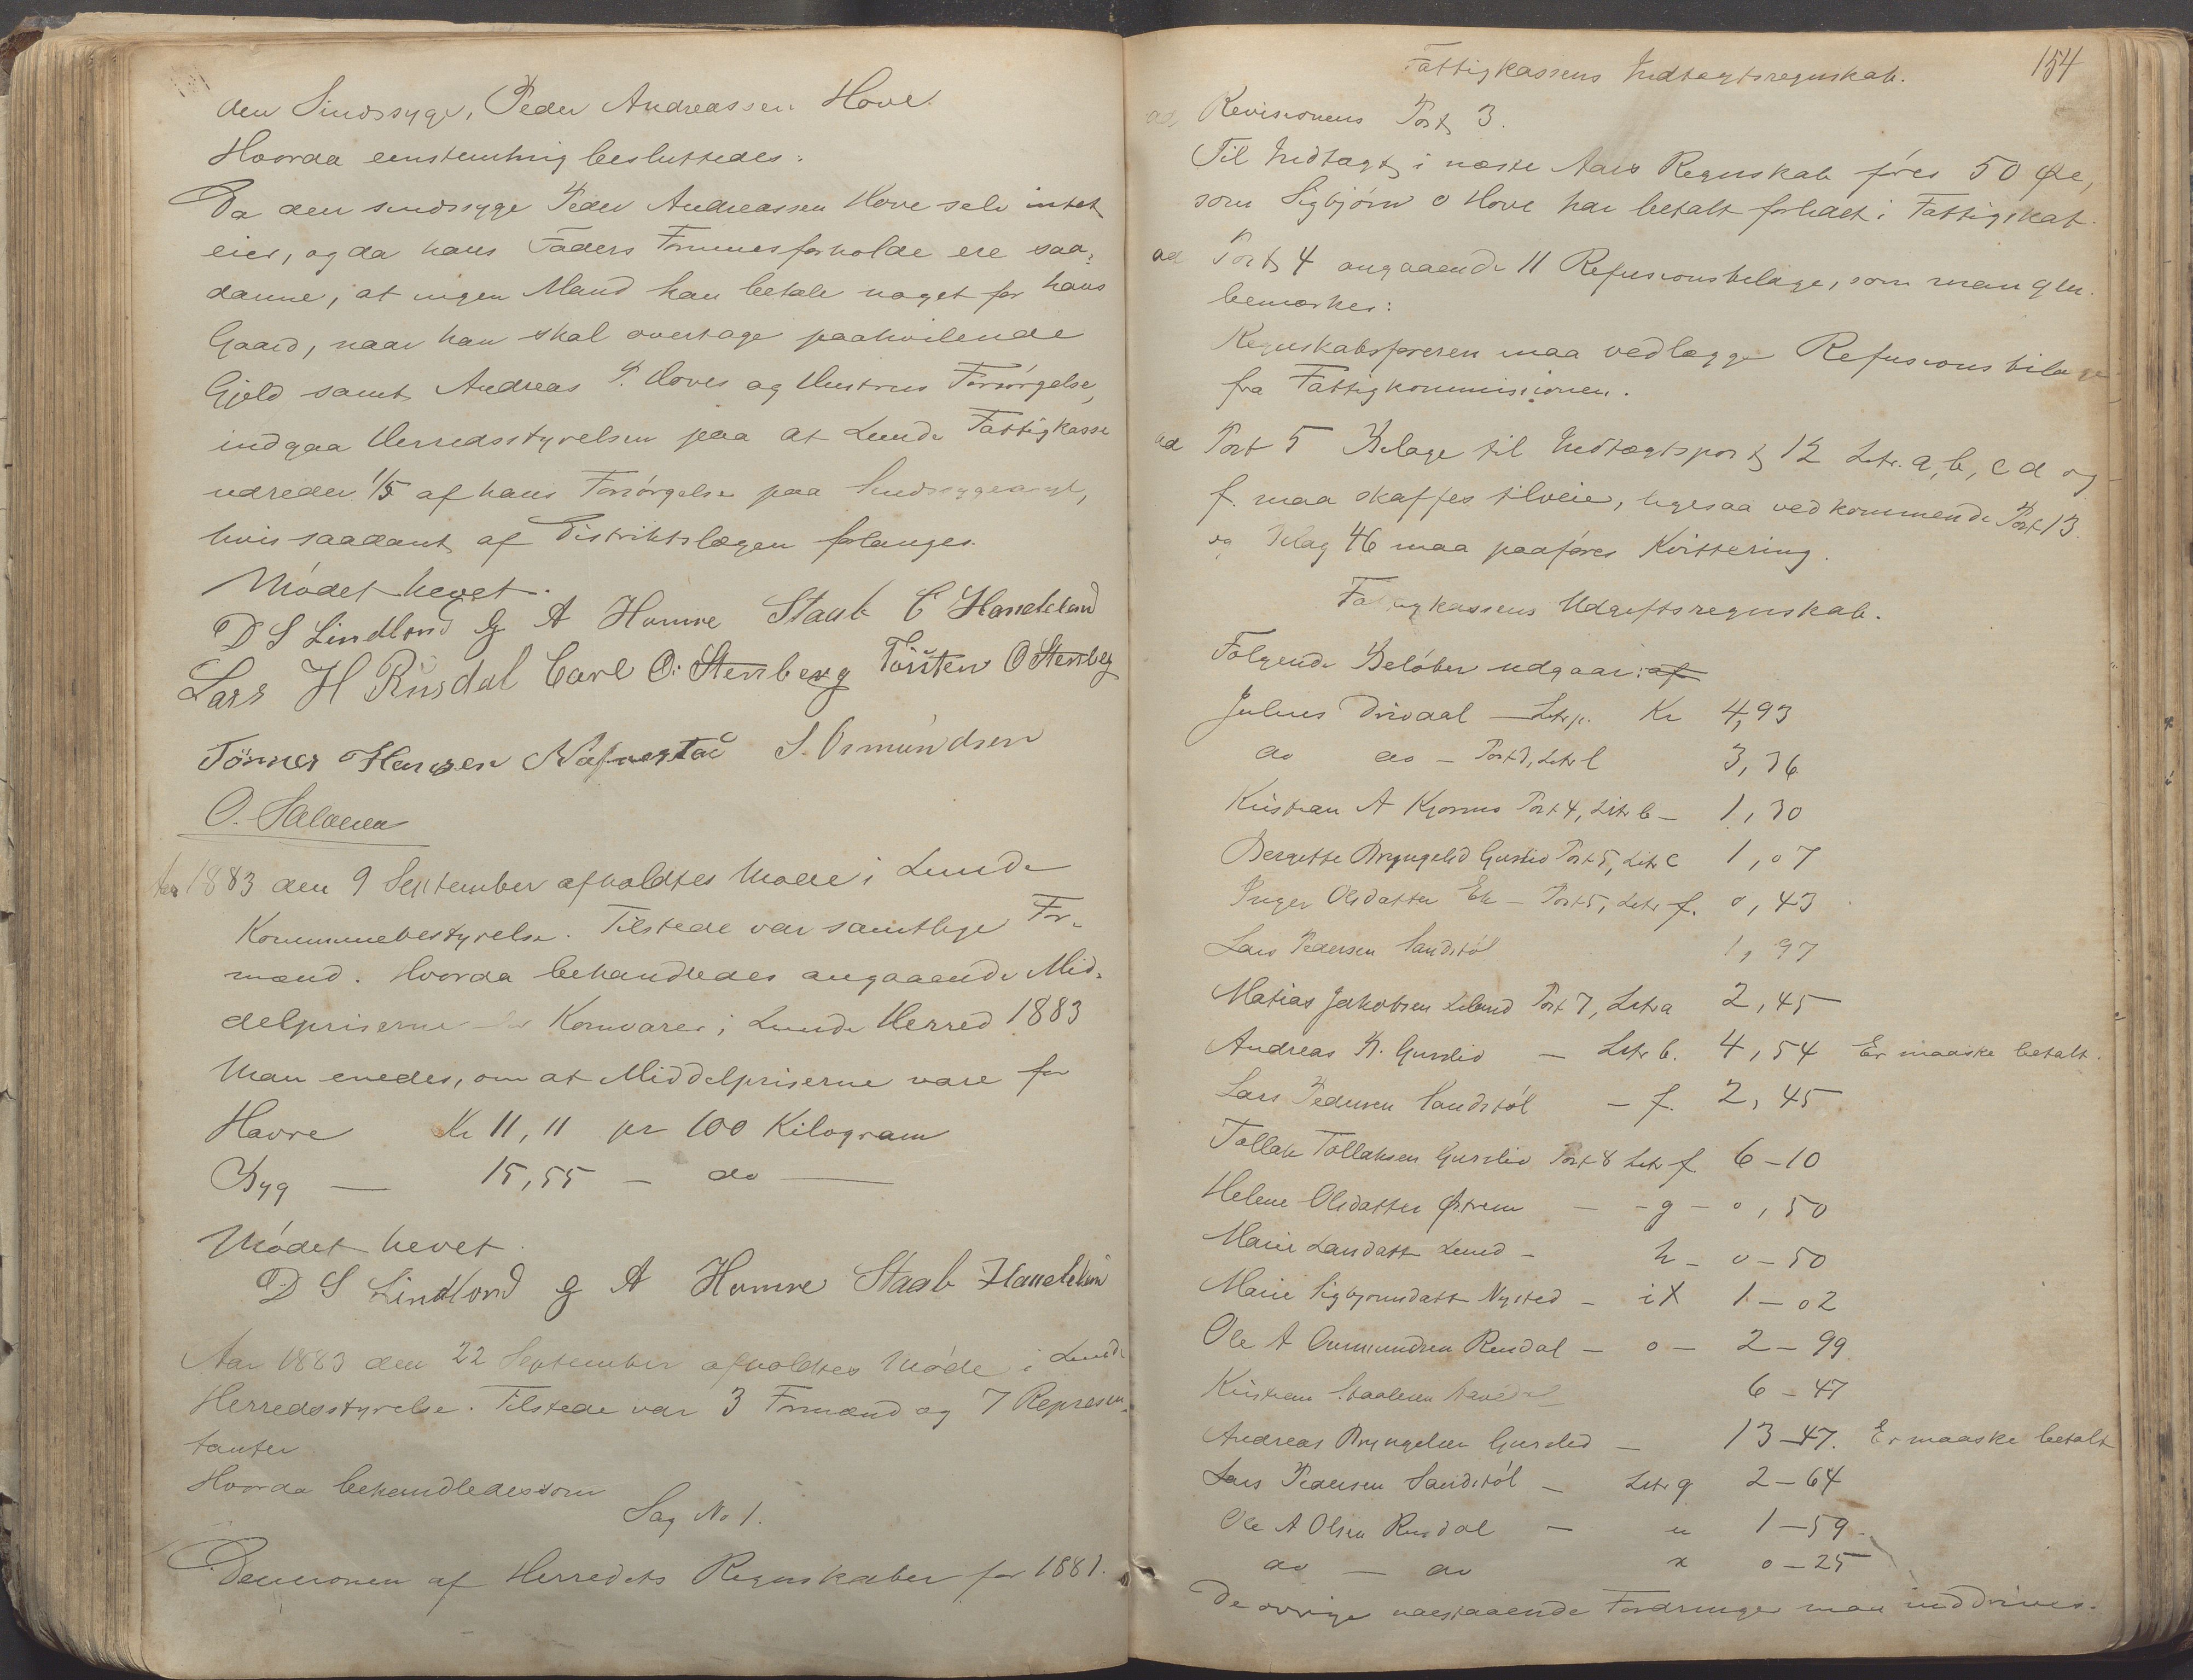 den Sindssyge, Peder Andreassen Hove.
Hvorda eenstemmig besluttedes:
Da den sindssyge Peder Andreassen Hove selv intet
eier, og da hans Faders Formuesforholde ere saa-
danne, at ingen Mand kan betale noget for hans
Gaard, naar han skal overtage paahvilende
Gjeld samt Andreas P. Hoves og Hustrus Forsørgelse,
indgaa Herredsstyrelsen paa at Lunde Fattigkasse
udreder 1/5 af hans Forsørgelse paa Sindssygeasyl,
hvis saadant af Distriktslægen forlanges.
Mödet hevet.
D S Lindland G A Humre Staal C Haneland
Lars H Rusdal Carl O. Stenberg Törsten O Stenberg
Tönnes Hansen Nafnestad S. Osmundsen
O. Salvesen
Aar 1883 den 9 September afholdtes Møde i Lunde
Kommunebestyrelse. Tilstede var samtlige For-
mænd. Hvorda behandledes angaaende Mid-
delpriserne for Kornvarer i Lunde Herred 1883
Man enedes, om at Middelpriserne vare for
Havre Kr 11,11 pr 100 Kilogram
Byg — 15,55 — do —
Mödet hevet.
D S Lindland G A Humre Staal Haneland
Aar 1883 den 22 September afholdtes Møde i Lunde
Herredsstyrelse. Tilstede var 3 Formænd og 7 Repræsen-
tanter
Hvorda behandledes som
Sag No 1.
Decisionen af Herredets Regnskaber for 1881.
154
Fattigkassens Indtægtsregnskab.
ad Revisionens Post 3.
Til Indtægt i næste Aars Regnskab føres 50 Øre,
som Sigbjørn O Hove har betalt forlidet i Fattigskat.
ad Post 4 angaaende 11 Refusionsbilage, som mangler
bemærkes:
Regnskabsføreren maa vedlægge Refusionsbilage
fra Fattigkommissionen.
ad Post 5 Bilage til Indtægtspost 12 Litr. a, b, c d og
f. maa skaffes tilveie, ligesaa vedkommende Post 13.
og Bilag 46 maa paaføres Kvittering.
Fattigkassens Udgiftsregnskab.
Følgende Beløber udgaar: af
Julius Drivdal — Litr p. Kr 4,93
do do — Post 3, Litr l 3,36
Kristian A Kjørmo Post 4, Litr b — 1,30
Bergitte Bryngelsd Gursli Post 5, Litr c 1,07
Inger Olsdatter Ek — Post 5, Litr f. 0,43
Lars Pedersen Sandstøl 1,97
Matias Jakobsen Eeland Post 7, Litr a 2,45
Andreas B. Gursli — Litr b. 4,54 Er maaske betalt.
Lars Pedersen Sandstøl — f. 2,45
Tollak Tollaksen Gursli Post 8 Litr f. 6—10
Helene Olsdatter Østrem — - g - 0,50
Marie Larsdatt Lund — h — 0—50
Marie Sigbjørnsdatt Nysted — i X 1—02
Ole A Osmundsen Rusdal — o — 2—99
Kristian Staalesen 6—47
Andreas Bryngelsen Gursli — 13—47. Er maaske betalt
Lars Pedersen Sandstøl — Litr q 2—64
Ole A Olsen Rusdal — u 1—59.
do — do x 0—25
De øvrige uaestaaende Fordringer maa inddrives.